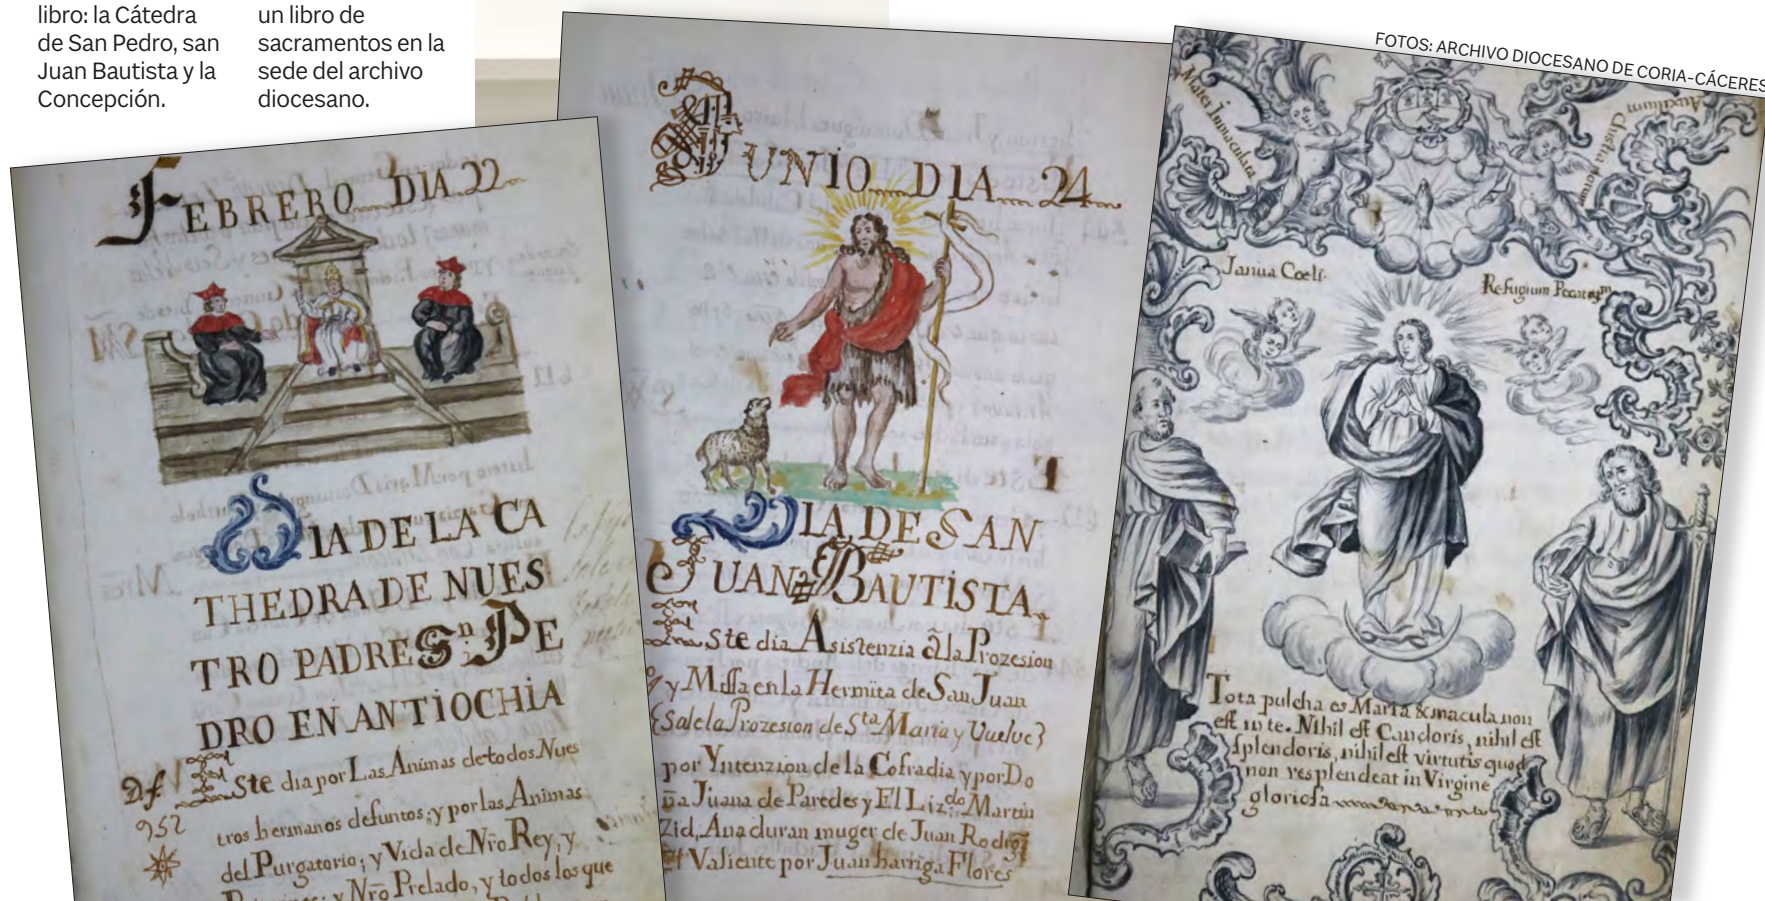 libro: la Cátedra
de San Pedro, san
Juan Bautista y la
Concepción.
un libro de
sacramentos en la
sede del archivo
diocesano.
FOTOS: ARCHIVO DIOCESANO DE CORIA-CÁCERES
FEBRERO DIA 22
DIA DE LA CA
THEDRA DE NUES
TRO PADRE Sn. PE
DRO EN ANTIOCHIA
Este dia por Las Animas de todos Nues
tros hermanos defuntos; y por las Animas
del Purgatorio; y Vida de Nro Rey, y
y Nro Prelado, y todos los que
Df
952
JUNIO DIA 24
DIA DE SAN
JUAN BAUTISTA
Este dia Asistenzia â la Prozesion
y Missa en la Hermita de San Juan
(Sale la Prozesion de Sta Maria y Vuelve)
por Yntenzion de la Cofradia y por Do
ña Juana de Paredes y El Lizdo Martin
Zid, Ana duran muger de Juan Rodrgz
El Valiente por Juan barriga Flores
Mater Inmaculata
Auxilium Christianorum
Janua Coeli
Refugium Pecatorum
Tota pulcha es Maria & macula non
est in te. Nihil est Candoris, nihil est
splendoris, nihil est virtutis quod
non resplendeat in Virgine
gloriosa